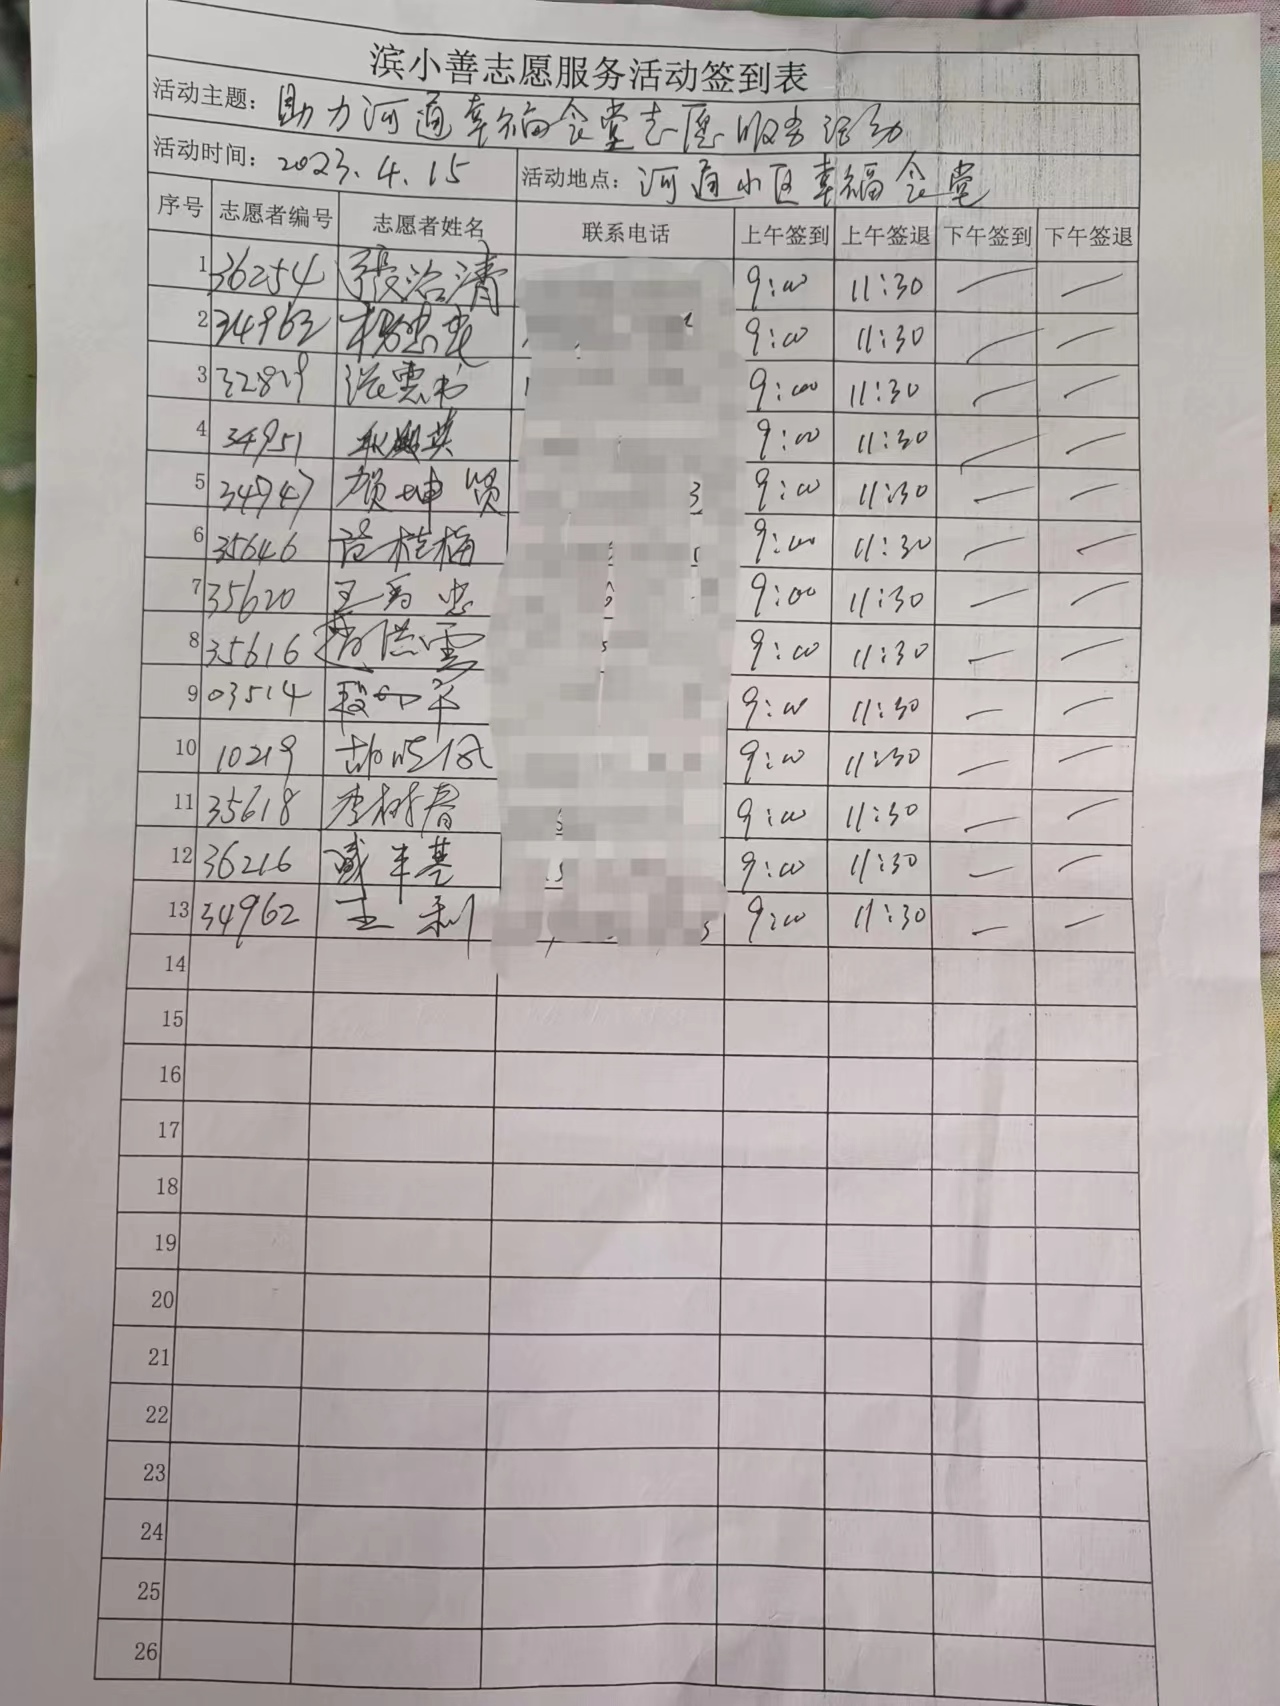 滨小善志愿服务活动签到表
活动主题: 助力河通幸福食堂志愿服务活动
活动时间: 2023.4.15 活动地点: 河通小区幸福食堂
序号 志愿者编号 志愿者姓名 联系电话 上午签到 上午签退 下午签到 下午签退
1 36254 張治清 9:00 11:30 — —
2 34963 杨忠 9:00 11:30 — —
3 32819 雲 9:00 11:30 — —
4 34951 英 9:00 11:30 — —
5 34947 贺坤贤 9:00 11:30 — —
6 35646 桂梅 9:00 11:30 — —
7 35620 王为忠 9:00 11:30 — —
8 35616 洪雲 9:00 11:30 — —
9 03514 9:00 11:30 — —
10 10219 胡 9:00 11:30 — —
11 35618 李树春 9:00 11:30 — —
12 36216 臧丰基 9:00 11:30 — —
13 34962 王利 9:00 11:30 — —
14
15
16
17
18
19
20
21
22
23
24
25
26